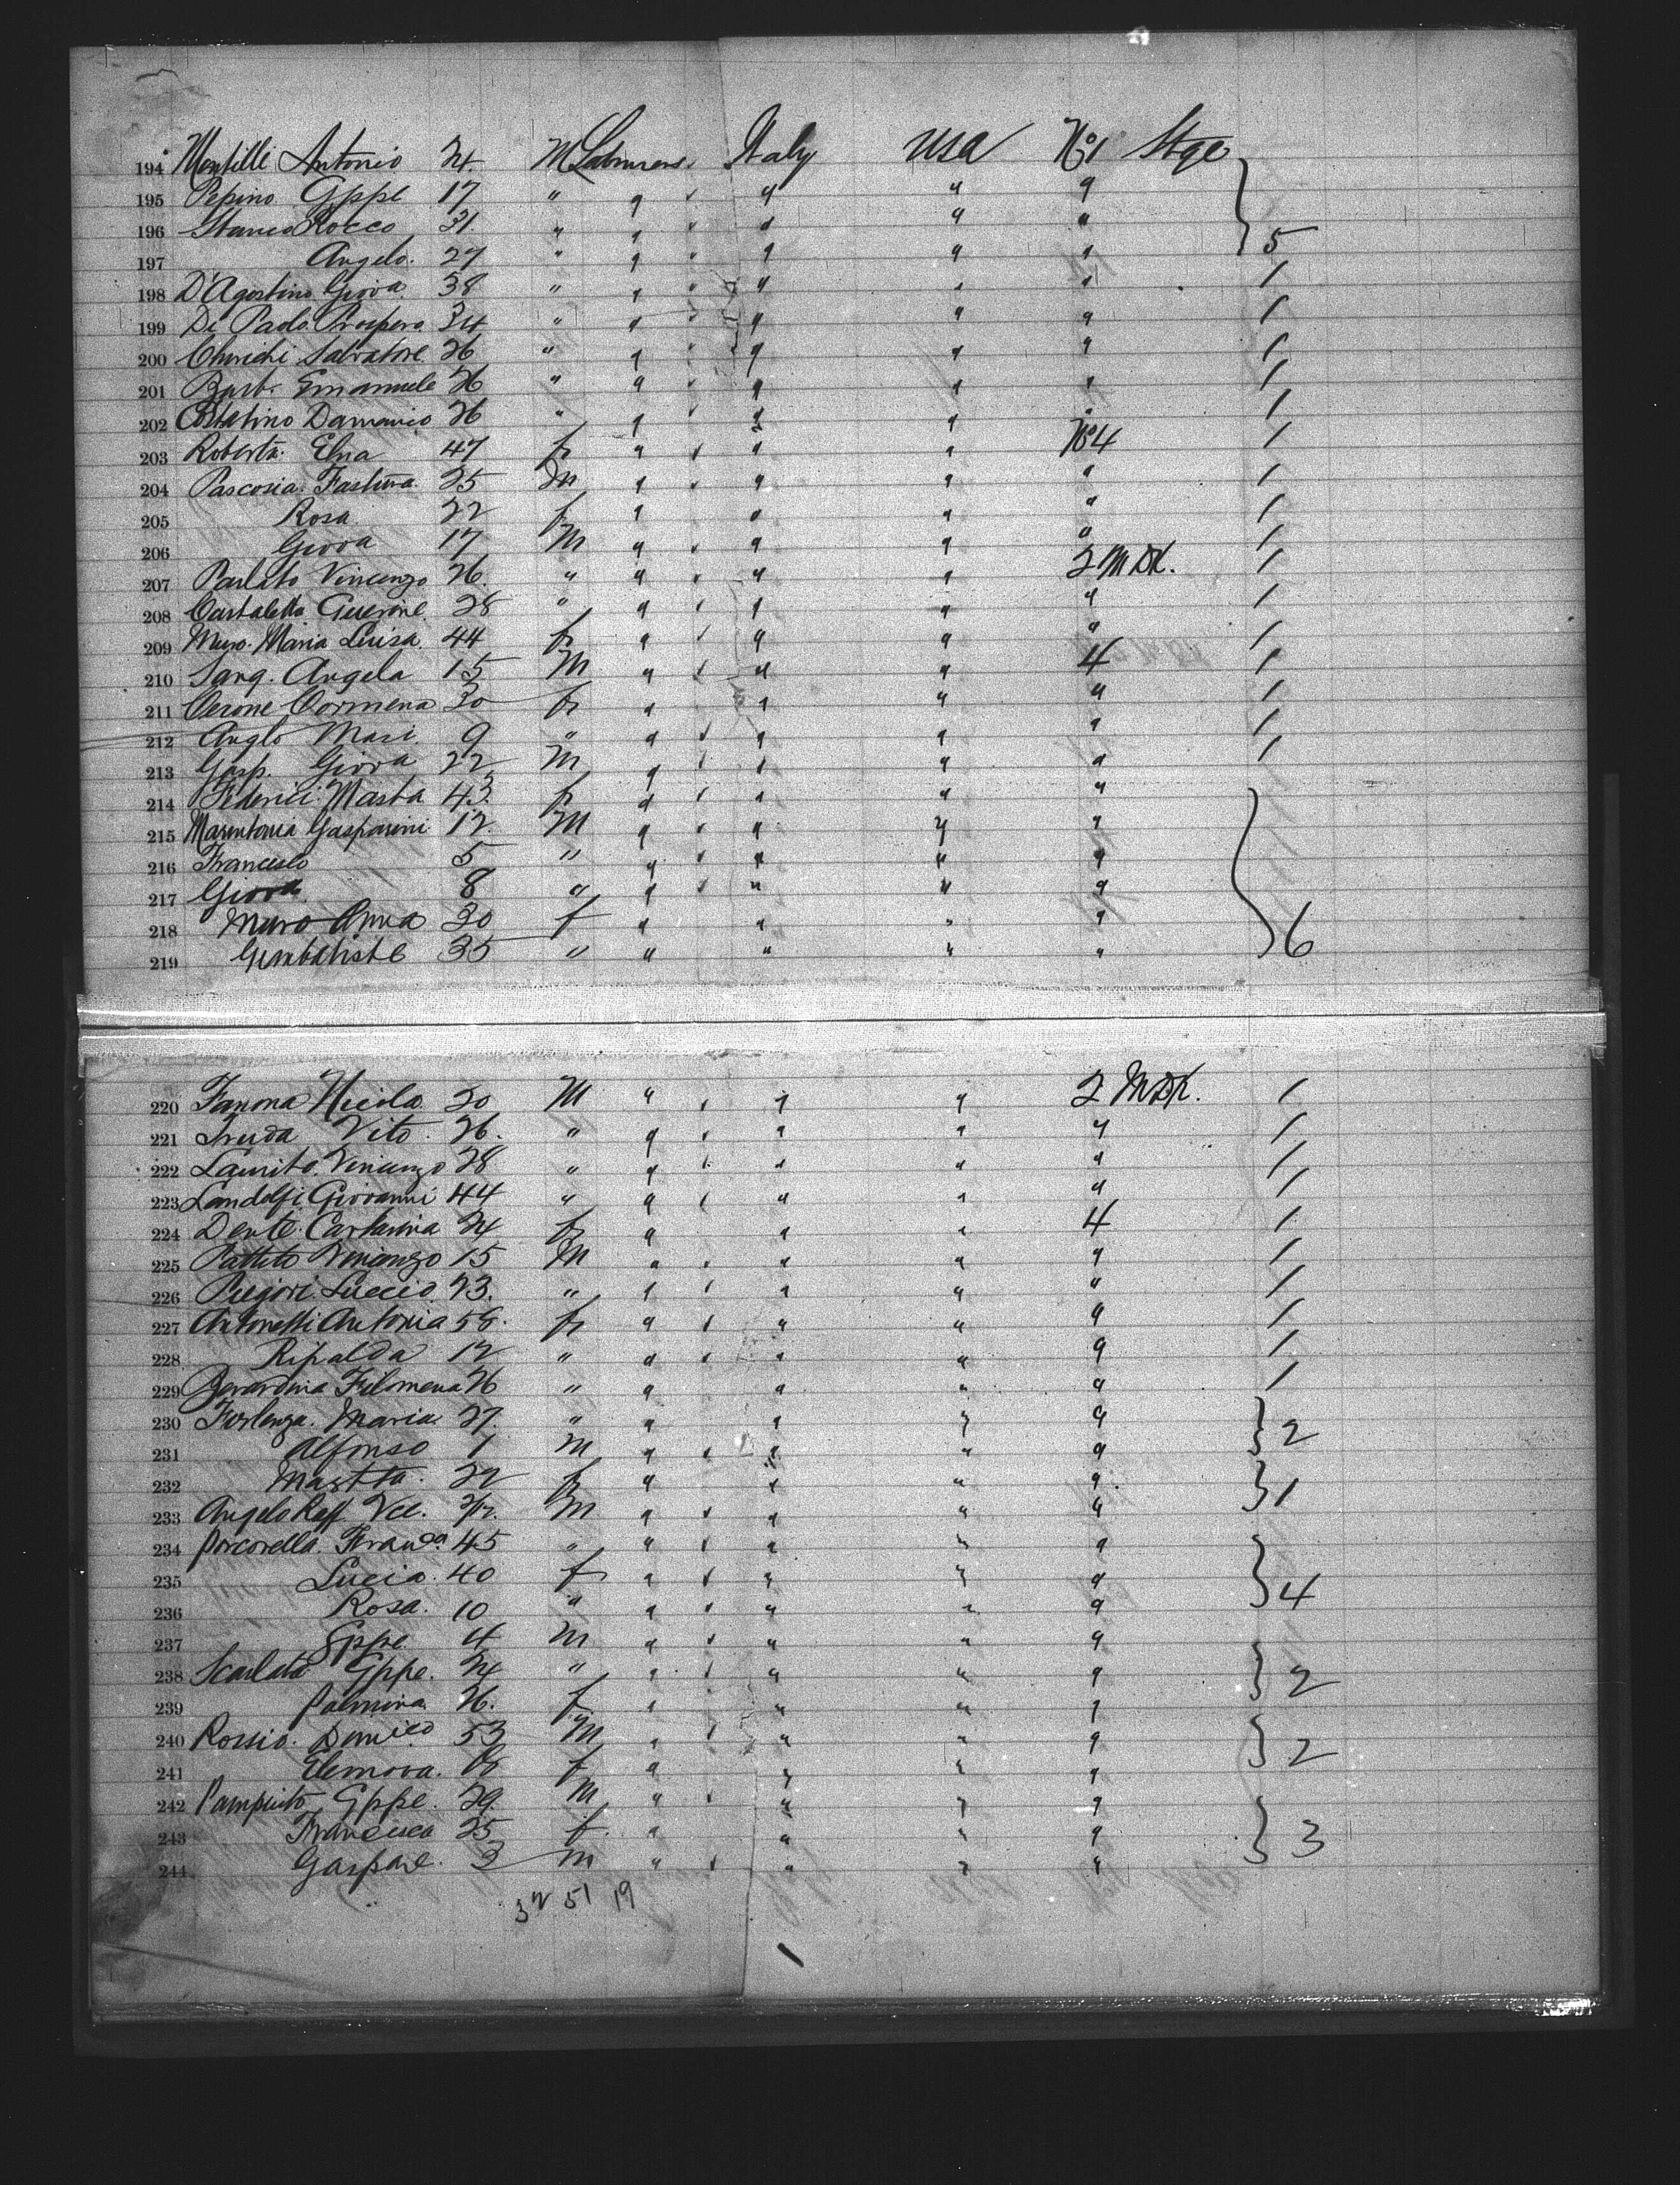 194 Montille Antonio 24. M Labourers Italy USA No 1 Stge
195 Pepino Gppe 17 " " " " "
196 Stanco Rocco 31. " " " " " 5
197 Angelo. 27 " " " " "
198 D'Agostino Giova 38 " " " " " 1
199 Di Paolo Prospero 34 " " " " " 1
200 Salvatore 26 " " " " " 1
201 Barb. Emanuele 26 " " " " " 1
202 Costatino Damanio 26 " " " " " 1
203 Roberta Elna 47 f " " " No 4 1
204 Pascosia 25 M " " " " 1
205 Rosa 22 f " " " " 1
206 Giova 17 M " " " " 1
207 Parlato Vincenzo 26. " " " " 2 M DK. 1
208 28 " " " " " 1
209 Muro. Maria Luisa 44 f " " " " 1
210 Sang. Angela 15 M " " " 4 1
211 Cerone Carmena 30 f " " " " 1
212 Anglo Mari 9 " " " " " 1
213 Gasp. Giova 22 M " " " " 1
214 Federici Masta 43. f " " " "
215 Marentonia Gasparini 12. M " " " "
216 Francesco 5 " " " " "
217 Giova 8 " " " " "
218 Muro Anna 30 f " " " " 6
219 Gimbatiste 35 " " " " "
220 Fanona Nicola 20 M " " " 2 M DK. 1
221 Truda Vito. 26. " " " " " 1
222 Laurito. Vincenzo 28 " " " " " 1
223 Landolfi. Giovanni 44 " " " " " 1
224 Dente. Cartarina 24 f " " " 4 1
225 Pattito Vincenzo 15 M " " " " 1
226 Luccio 23. " " " " " 1
227 Antonelli Antonia 58. f " " " " 1
228 Ripalda 12 " " " " " 1
229 Berardina Filomena 26 " " " " " 1
230 Forlenza. Maria 27. " " " " " 2
231 Alfonso 1 M " " " "
232 Mastta. 22 f " " " " 1
233 Angelo Raff. M " " " "
234 Porcorella. 45 " " " " "
235 Lucia. 40 f " " " " 4
236 Rosa. 10 " " " " "
237 Gppe 4 M " " " "
238 Scarlata Gppe. 24 " " " " " 2
239 Palmira 26. f " " " "
240 Rossio. Domico 53 M " " " " 2
241 Elenova. f " " " "
242 Pampinto Gppe. 29. M " " " "
243 Francesca 25 f. " " " " 3
244 Gaspare. 3 M " " " "
32 51 19